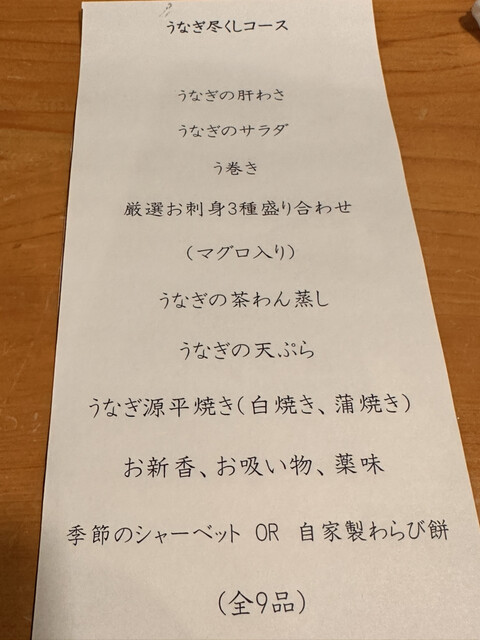 うなぎ尽くしコース
うなぎの肝わさ
うなぎのサラダ
う巻き
厳選お刺身3種盛り合わせ
(マグロ入り)
うなぎの茶わん蒸し
うなぎの天ぷら
うなぎ源平焼き(白焼き、蒲焼き)
お新香、お吸い物、薬味
季節のシャーベット OR 自家製わらび餅
(全9品)